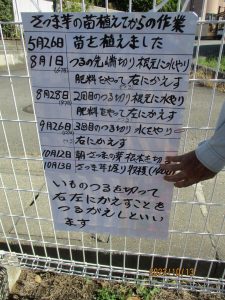 さつま芋の苗植えてからの作業
5月26日 苗を植えました
8月1日 つるの先端切り 根元に水やり
肥料をやって 右にかえす
8月28日 2回目のつる切り 根元に水やり
肥料をやって 左にかえす
9月26日 3回目のつる切り 水をやり
右にかえす
10月12日 朝 さつま芋 根本を切る
10月13日 さつま芋堀り 収穫
いものつるを切って
右左にかえすことを
つるがえしといい
ます